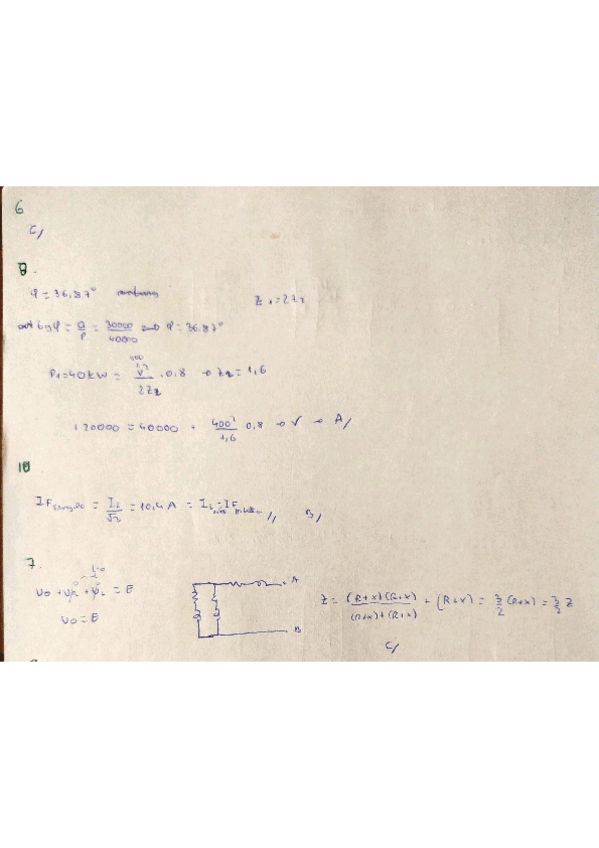 6
C/
8.
φ = 36.87°
Z1 = 2Z2
tg φ = Q/P = 30000/40000 → φ = 36.87°
P1 = 40 kW = 400 V²/2Z2 · 0,8 → Z2 = 1,6
120000 = 40000 + 400²/1,6 0,8 → √ → A/
10
= IL/√3 = 10,4 A = IL B/
7.
I=0
= E
U0 = E
A
B
Z = (R+X)(R+X)/(R+X)+(R+X) + (R+X) = 3/2 (R+X) = 3/2 Z
C/